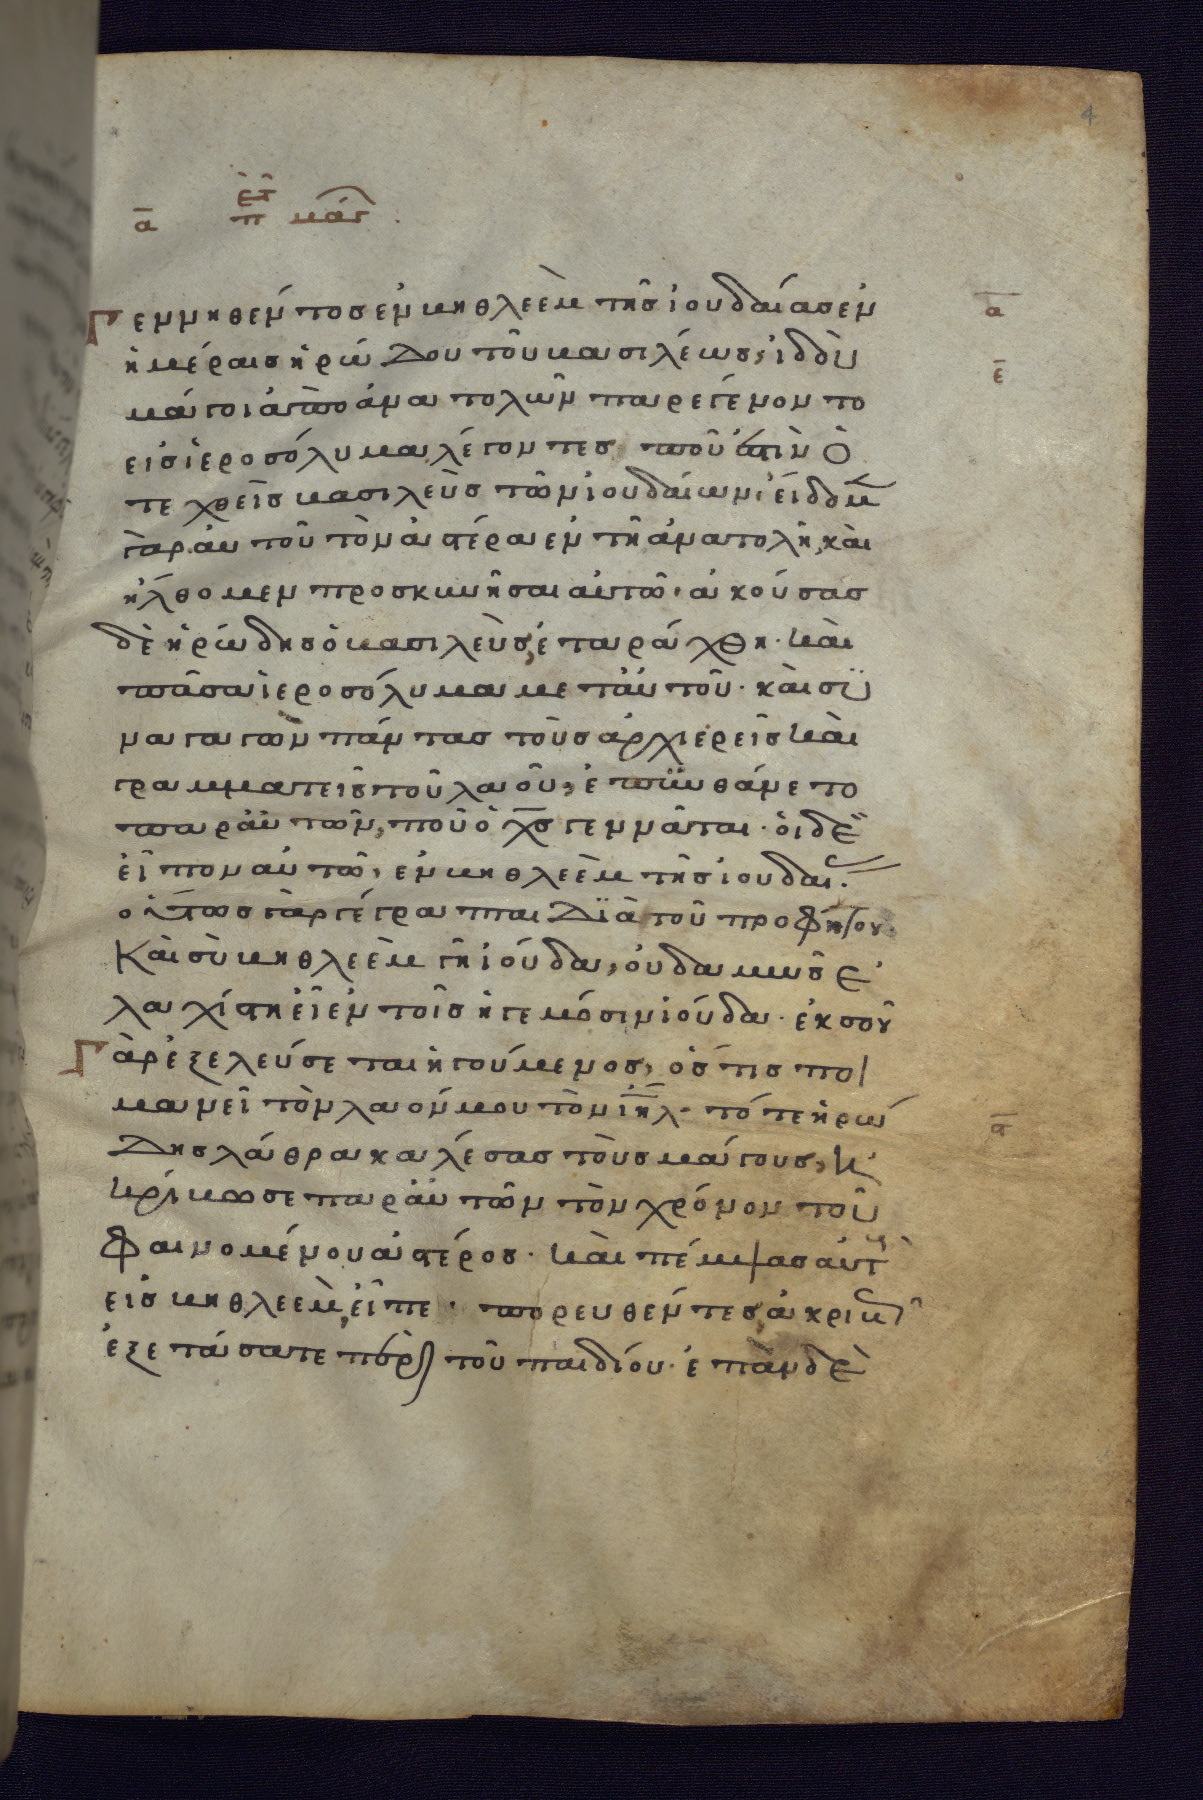 4
α
Γεννηθέντος ἐν βηθλεὲμ τῆς ἰουδαίας ἐν
α
ἡμέραις ἡρώδου τοῦ βασιλέως, ἰδοὺ
ε
μάγοι ἀπὸ ἀνατολῶν παρεγένοντο
εἰς ἱεροσόλυμα λέγοντες· ποῦ ἐστὶν ὁ
τεχθεὶς βασιλεὺς τῶν ἰουδαίων· εἴδομεν
γὰρ αὐτοῦ τὸν ἀστέρα ἐν τῆ ἀνατολῆ, καὶ
ἤλθομεν προσκυνῆσαι αὐτῶ· ἀκούσας
δὲ ἡρώδης ὁ βασιλεὺς, ἐταράχθη· καὶ
πᾶσα ἱεροσόλυμα μετ᾽ αὐτοῦ· καὶ συ
ναγαγὼν πάντας τοὺς ἀρχιερεῖς καὶ
γραμματεῖς τοῦ λαοῦ, ἐπυνθάνετο
παρ᾽ αὐτῶν, ποῦ ὁ χ̅ς̅ γεννᾶται· οἱ δὲ
εἶπον αὐτῶ, ἐν βηθλεὲμ τῆς ἰουδαι·
οὕτως γὰρ γέγραπται διὰ τοῦ προφήτου·
Καὶ σὺ βηθλεὲμ γῆ ἰούδα, οὐδαμῶς ἐ
λαχίστη εἶ ἐν τοῖς ἡγεμόσιν ἰούδα· ἐκ σοῦ
Γὰρ ἐξελεύσεται ἡγούμενος, ὅστις ποι
μανεῖ τὸν λαόν μου τὸν ι̅η̅λ̅· τότε ἡρώ
α
δης λάθρα καλέσας τοὺς μάγους, ἠ
κρίβωσε παρ᾽ αὐτῶν τὸν χρόνον τοῦ
φαινομένου ἀστέρος· καὶ πέμψας αὐτοὺς
εἰς βηθλεὲμ, εἶπε· πορευθέντες, ἀκριβῶς
ἐξετάσατε περὶ τοῦ παιδίου· ἐπὰν δὲ